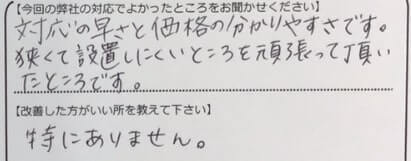 【今回の弊社の対応でよかったところをお聞かせください】
対応の早さと価格の分かりやすさです。
狭くて設置しにくいところを頑張って頂い
たところです。
【改善した方がいい所を教えて下さい】
特にありません。